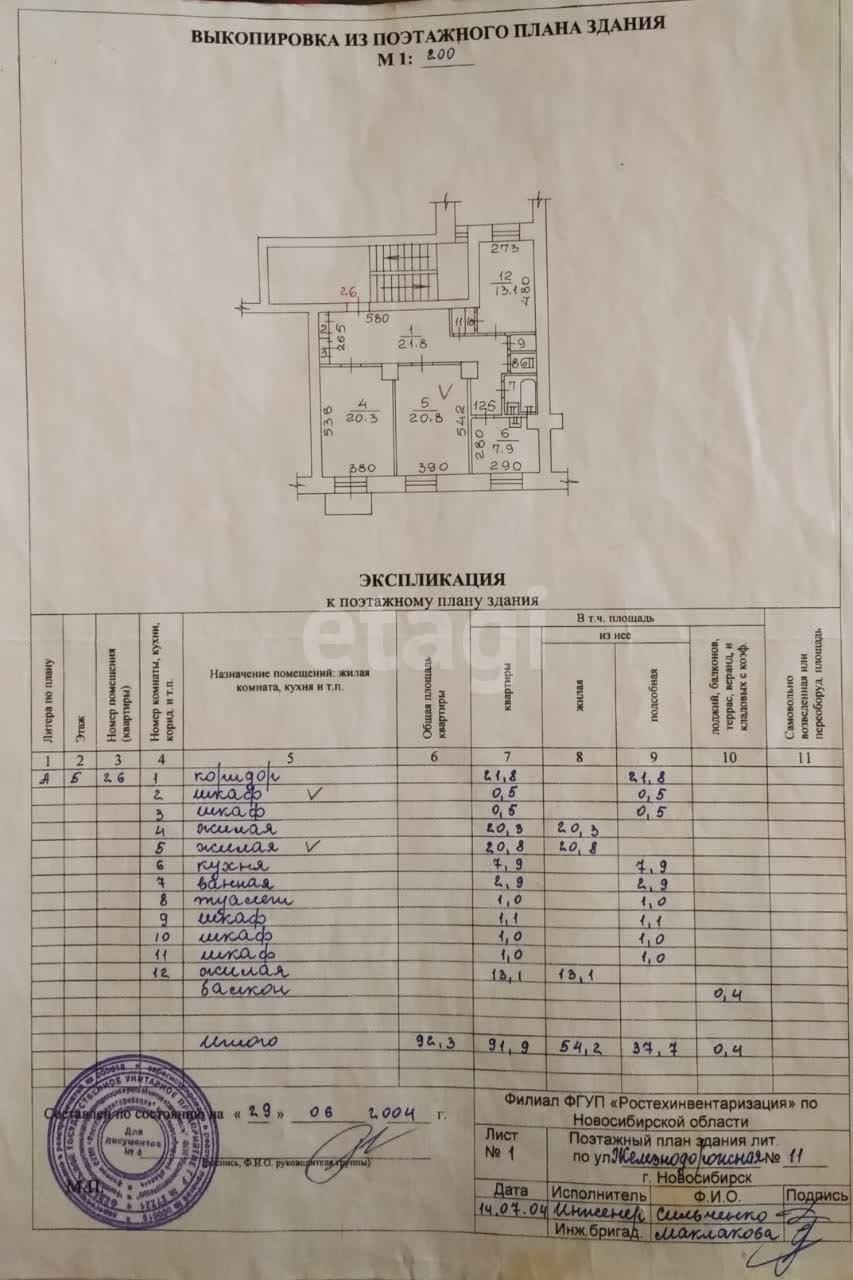 ВЫКОПИРОВКА ИЗ ПОЭТАЖНОГО ПЛАНА ЗДАНИЯ
М 1: 200
273
12
13.1
480
26
580
1
21.8
265
2
3
11
10
9
8
7
125
4
20.3
538
380
5
20.8
542
390
6
7.9
280
290
etagi
ЭКСПЛИКАЦИЯ
к поэтажному плану здания
Литера по плану
Этаж
Номер помещения (квартиры)
Номер комнаты, кухни, корид. и т.п.
Назначение помещений: жилая комната, кухня и т.п.
Общая площадь квартиры
В т.ч. площадь
квартиры
из нее
жилая
подсобная
лоджий, балконов, террас, веранд, и кладовых с коэф.
Самовольно возведенная или переоборуд. площадь
1 2 3 4 5 6 7 8 9 10 11
А 5 26 1 коридор 21,8 21,8
2 шкаф 0,5 0,5
3 шкаф 0,5 0,5
4 жилая 20,3 20,3
5 жилая 20,8 20,8
6 кухня 7,9 7,9
7 ванная 2,9 2,9
8 туалет 1,0 1,0
9 шкаф 1,1 1,1
10 шкаф 1,0 1,0
11 шкаф 1,0 1,0
12 жилая 13,1 13,1
балкон 0,4
Итого 92,3 91,9 54,2 37,7 0,4
Составлен по состоянию на « 29 » 06 2004 г.
(подпись, Ф.И.О. руководителя группы)
М.П.
Для документов
Филиал ФГУП «Ростехинвентаризация» по
Новосибирской области
Лист № 1
Поэтажный план здания лит.
по ул Железнодорожная № 11
г. Новосибирск
Дата Исполнитель Ф.И.О. Подпись
14.07.04 Инженер Сильченко
Инж.бригад. Маклакова